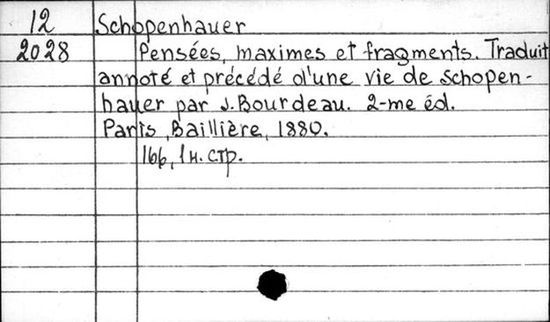 12 Schopenhauer
2028 Pensées, maximes et fragments. Traduit
annoté et précédé d'une vie de Schopen-
hauer par J. Bourdeau. 2-me éd.
Paris, Baillière, 1880.
166, 1 н. стр.